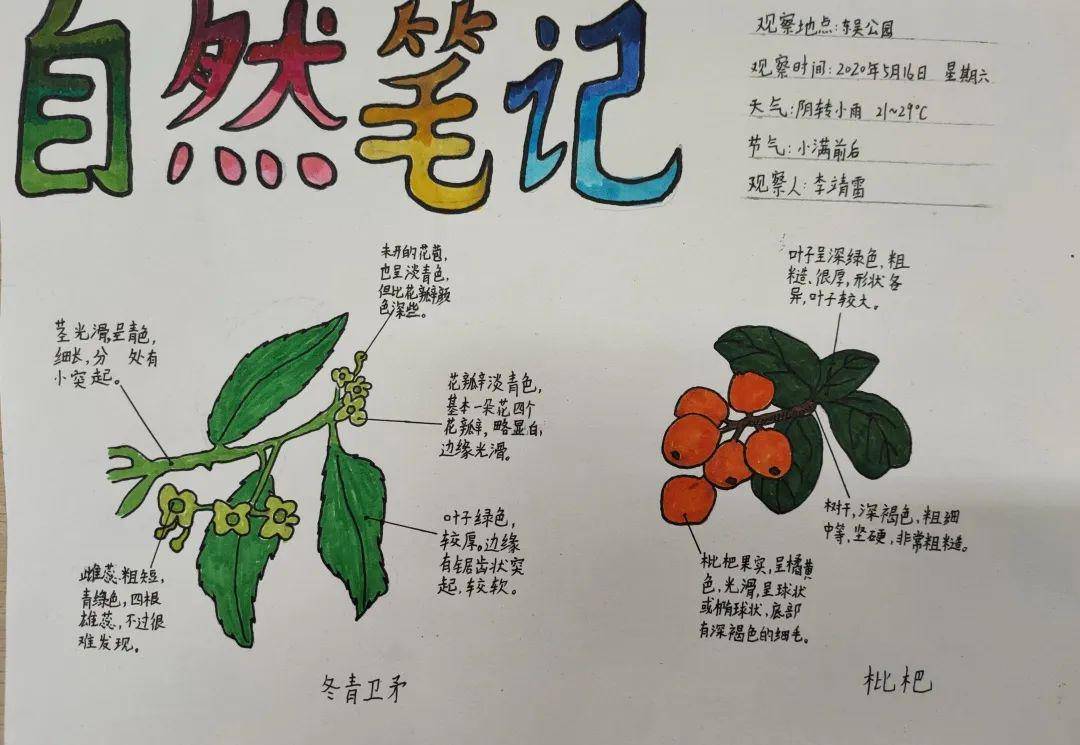 自然笔记
观察地点:东吴公园
观察时间:2020年5月16日 星期六
天气:阴转小雨 21~29°C
节气:小满前后
观察人:李靖雷
未开的花苞,
也呈淡青色,
但比花瓣颜
色深些。
茎光滑,呈青色,
细长,分 处有
小突起。
花瓣淡青色,
基本一朵花四个
花瓣,略显白,
边缘光滑。
叶子绿色,
较厚。边缘
有锯齿状突
起,较软。
雌蕊粗短,
青绿色,四根
雄蕊,不过很
难发现。
冬青卫矛
叶子呈深绿色,粗
糙、很厚,形状各
异,叶子较大。
树干,深褐色,粗细
中等,坚硬,非常粗糙。
枇杷果实,呈橘黄
色,光滑,呈球状
或椭球状,底部
有深褐色的细毛。
枇杷